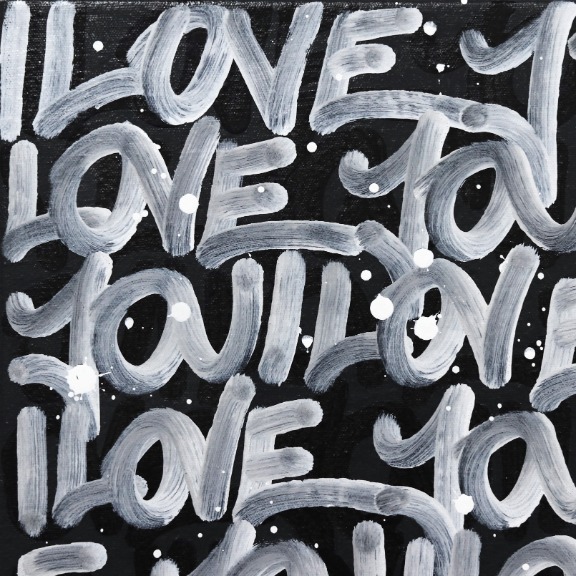 I LOVE YO
LOVE YOU
YOU I LOVE
I LOVE YOU